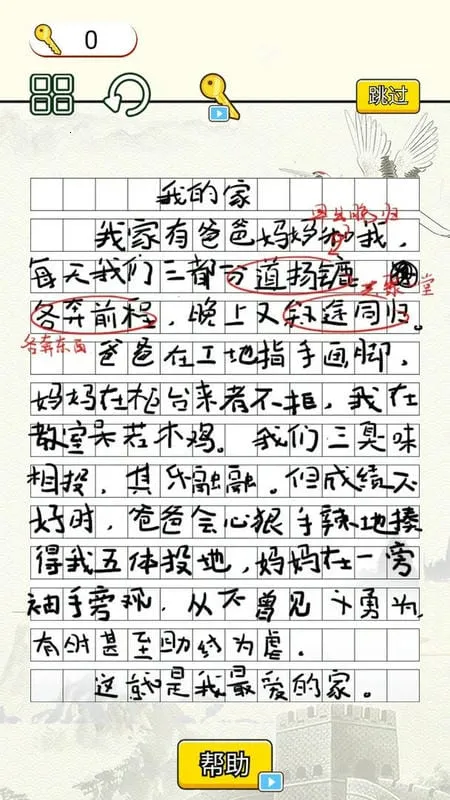 0
跳过
我的家
早出晚归
我家有爸爸妈妈和我，
每天我们三都分道扬镳
共聚一堂
各奔前程，晚上又殊途同归。
各奔东西
爸爸在工地指手画脚，
妈妈在柜台来者不拒，我在
教室呆若木鸡。我们三臭味
相投，其乐融融。但成绩不
好时，爸爸会心狠手辣地揍
得我五体投地，妈妈在一旁
袖手旁观，从不曾见 勇为，
有时甚至助纣为虐。
这就是我最爱的家。
帮助